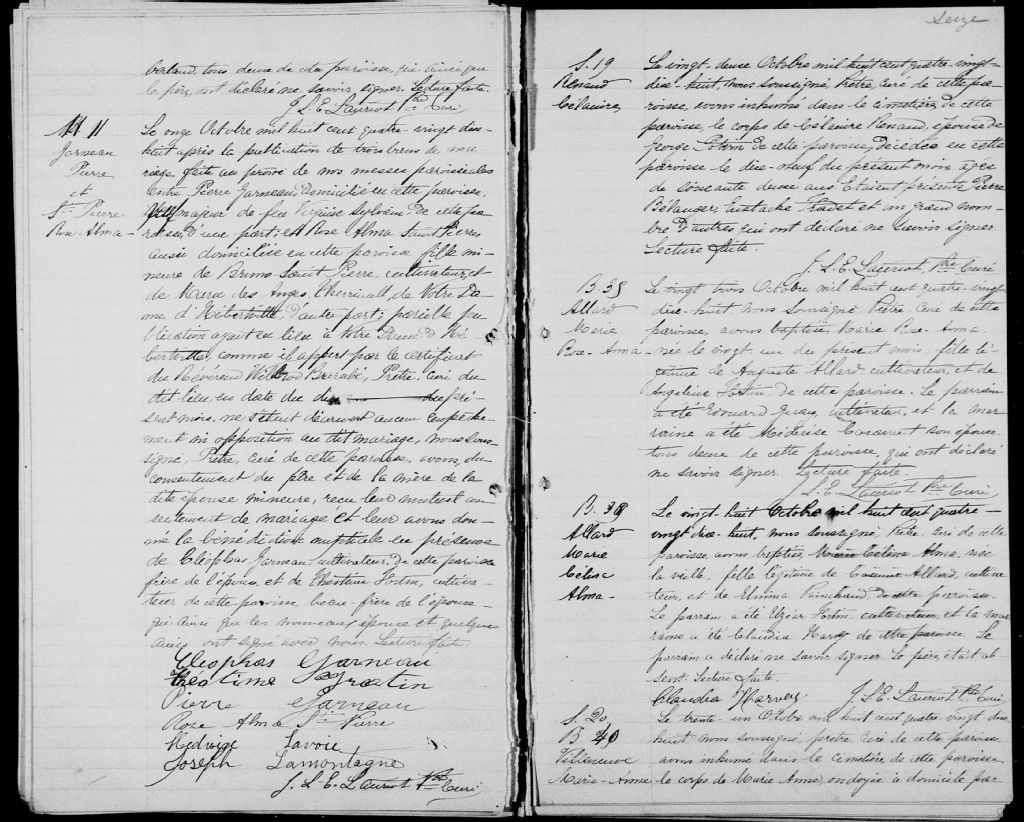 berland, tous deux de cette paroisse, qui ainsi que
le père, ont déclaré ne savoir signer. Lecture faite.
J. L. E. Lauriot Ptre Curé
M 11
Garneau
Pierre
et
St. Pierre
Rose-Alma-
Le onze Octobre mil huit cent quatre-vingt dix-
huit après la publication de trois bans de ma
riage faite au prône de nos messes paroissiales
entre Pierre Garneau, domicilié en cette paroisse,
veuf majeur de feu Virginie Sylvain, de cette pa
roisse, d'une part; et Rose Alma Saint Pierre
aussi domiciliée en cette paroisse, fille mi-
neure de Bruno Saint Pierre, cultivateur, et
de Marie des Anges Therriault, de Notre Da-
me d'Hébertville d'autre part; pareille pu
blication ayant eu lieu à Notre Dame d'Hé-
bertville, comme il appert par le certificat
du Révérend Wilbrod Barabé, Prêtre, Curé du
dit lieu en date du dix du pré-
sent mois, ne s'étant découvert aucun empêche-
ment ni opposition au dit mariage, nous sous-
signé, Prêtre, curé de cette paroisse, avons, du
consentement du père et de la mère de la
dite épouse mineure, reçu leur mutuel con
sentement de mariage et leur avons don-
né la bénédiction nuptiale en présence
de Cléophas Garneau, cultivateur, de cette paroisse
frère de l'époux, et de Théotime Fortin, cultiva-
teur de cette paroisse, beau-frère de l'épouse
qui ainsi que les nouveaux époux et quelques
amis ont signé avec nous. Lecture faite.
Cleophas Garneau
Theotime Fortin
Pierre Garneau
Rose Alma St. Pierre
Hedwige Lavoie
Joseph Lamontagne
J. L. E. Lauriot Ptre Curé
Seize
S. 19
Renaud
Célanire
Le vingt-deux Octobre mil huit cent quatre-vingt-
dix-huit, nous soussigné, Prêtre, curé de cette pa-
roisse, avons inhumé dans le cimetière de cette
paroisse, le corps de Célanire Renaud, épouse de
George Potvin de cette paroisse, décédée en cette
paroisse le dix-neuf du présent mois âgée
de soixante deux ans. Etaient présents Pierre
Bélanger, Eustache Nadet et un grand nom-
bre d'autres qui ont déclaré ne savoir signer.
Lecture faite.
J. L. E. Lauriot Ptre Curé
B. 38
Allard
Marie
Rose-Anna
Le vingt trois Octobre mil huit cent quatre-vingt
dix-huit, nous soussigné, Prêtre, curé de cette
paroisse, avons baptisé, Marie Rose-Anna
née le vingt-un du présent mois, fille lé-
gitime de Auguste Allard cultivateur, et de
Angelina Fortin, de cette paroisse. Le parrain
a été Edouard cultivateur, et la mar-
raine a été Médérise son épouse
tous deux de cette paroisse, qui ont déclaré
ne savoir signer. Lecture faite.
J. L. E. Lauriot Ptre Curé
B. 39
Allard
Marie
Célina
Alma-
Le vingt huit Octobre mil huit cent quatre-
vingt dix-huit, nous soussigné, Prêtre, curé de cette
paroisse, avons baptisé, Marie Célina Alma, née
la veille, fille légitime de Casimir Allard, cultiva
teur, et de Elmina Painchaud, de cette paroisse.
Le parrain a été Elzéar Fortin, cultivateur, et la mar
raine a été Claudia Harvey de cette paroisse. Le
parrain a déclaré ne savoir signer. Le père était ab-
sent. Lecture faite.
Claudia Harvey J. L. E. Lauriot Ptre Curé
S. 20
B. 40
Villeneuve
Marie-Anne
Le trente-un Octobre mil huit cent quatre vingt dix
huit, nous soussigné, prêtre curé de cette paroisse,
avons inhumé dans le cimetière de cette paroisse
le corps de Marie Anne, ondoyée à domicile par